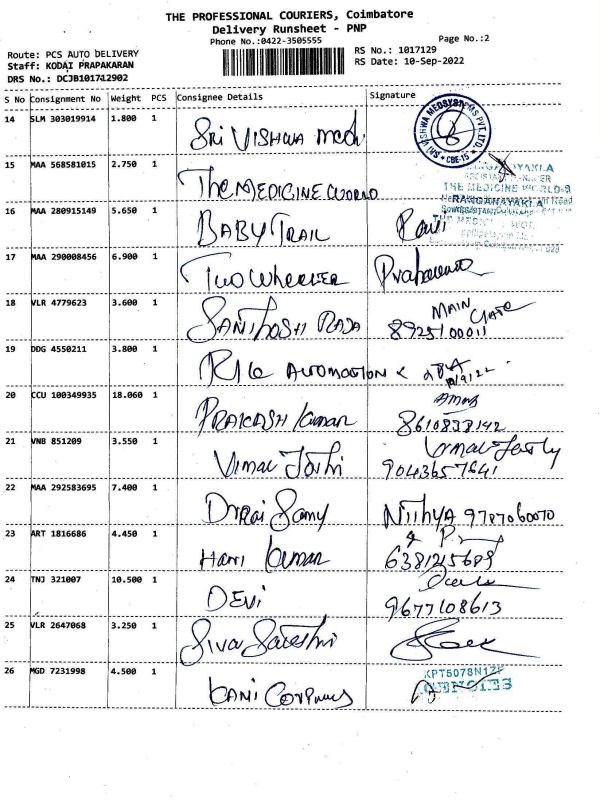 THE PROFESSIONAL COURIERS, Coimbatore
Delivery Runsheet - PNP
Phone No.:0422-3505555
Page No.:2
Route: PCS AUTO DELIVERY
RS No.: 1017129
Staff: KODAI PRAPAKARAN
RS Date: 10-Sep-2022
DRS No.: DCJB101712902
S No Consignment No Weight PCS Consignee Details Signature
14 SLM 303019914 1.800 1 Sri VISHWA Medi
VISHWA MEDSYSTEMS PVT. LTD. CBE-15
15 MAA 568581015 2.750 1 The MEDICINE WORLD
THE MEDICINE WORLD
RANGANAYAKI.A
16 MAA 280915149 5.650 1 BABY TRAIL
17 MAA 290008456 6.900 1 Two Wheeler
18 VLR 4779623 3.600 1 SANTHOSH RAJA MAIN Gate
8925100011
19 DDG 4550211 3.800 1 AUTOMOTION
10/9/22
20 CCU 100349935 18.060 1 PRAKASH Kumar
8610838142
21 VNB 851209 3.550 1 Vimal Joshi
9043657641
22 MAA 292583695 7.400 1 Durai Samy Nithya 9787060070
23 ART 1816686 4.450 1 Hari Kumar
6381215689
24 TNJ 321007 10.500 1 DEVI
9677108613
25 VLR 2647068 3.250 1 Siva
26 MGD 7231998 4.500 1 Kani
AGENCIES